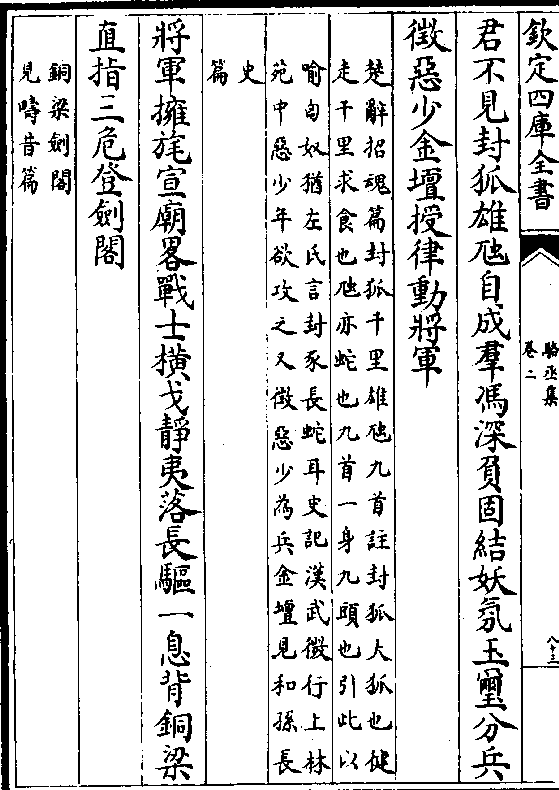 欽定四庫全書
駱丞集
卷二
八十三
君不見封狐雄虺自成羣馮深負固結妖氛玉璽分兵
徵惡少金壇授律動將軍
楚辭招魂篇封狐千里雄虺九首註封狐大狐也健
走千里求食也虺亦蛇也九首一身九頭也引此以
喻匈奴猶左氏言封豕長蛇耳史記漢武微行上林
苑中惡少年欲攻之又徵惡少為兵金壇見和孫長
史
篇
將軍擁旄宣廟畧戰士横戈靜夷落長驅一息背銅梁
直指三危登劍閣
銅梁劍閣
見疇昔篇